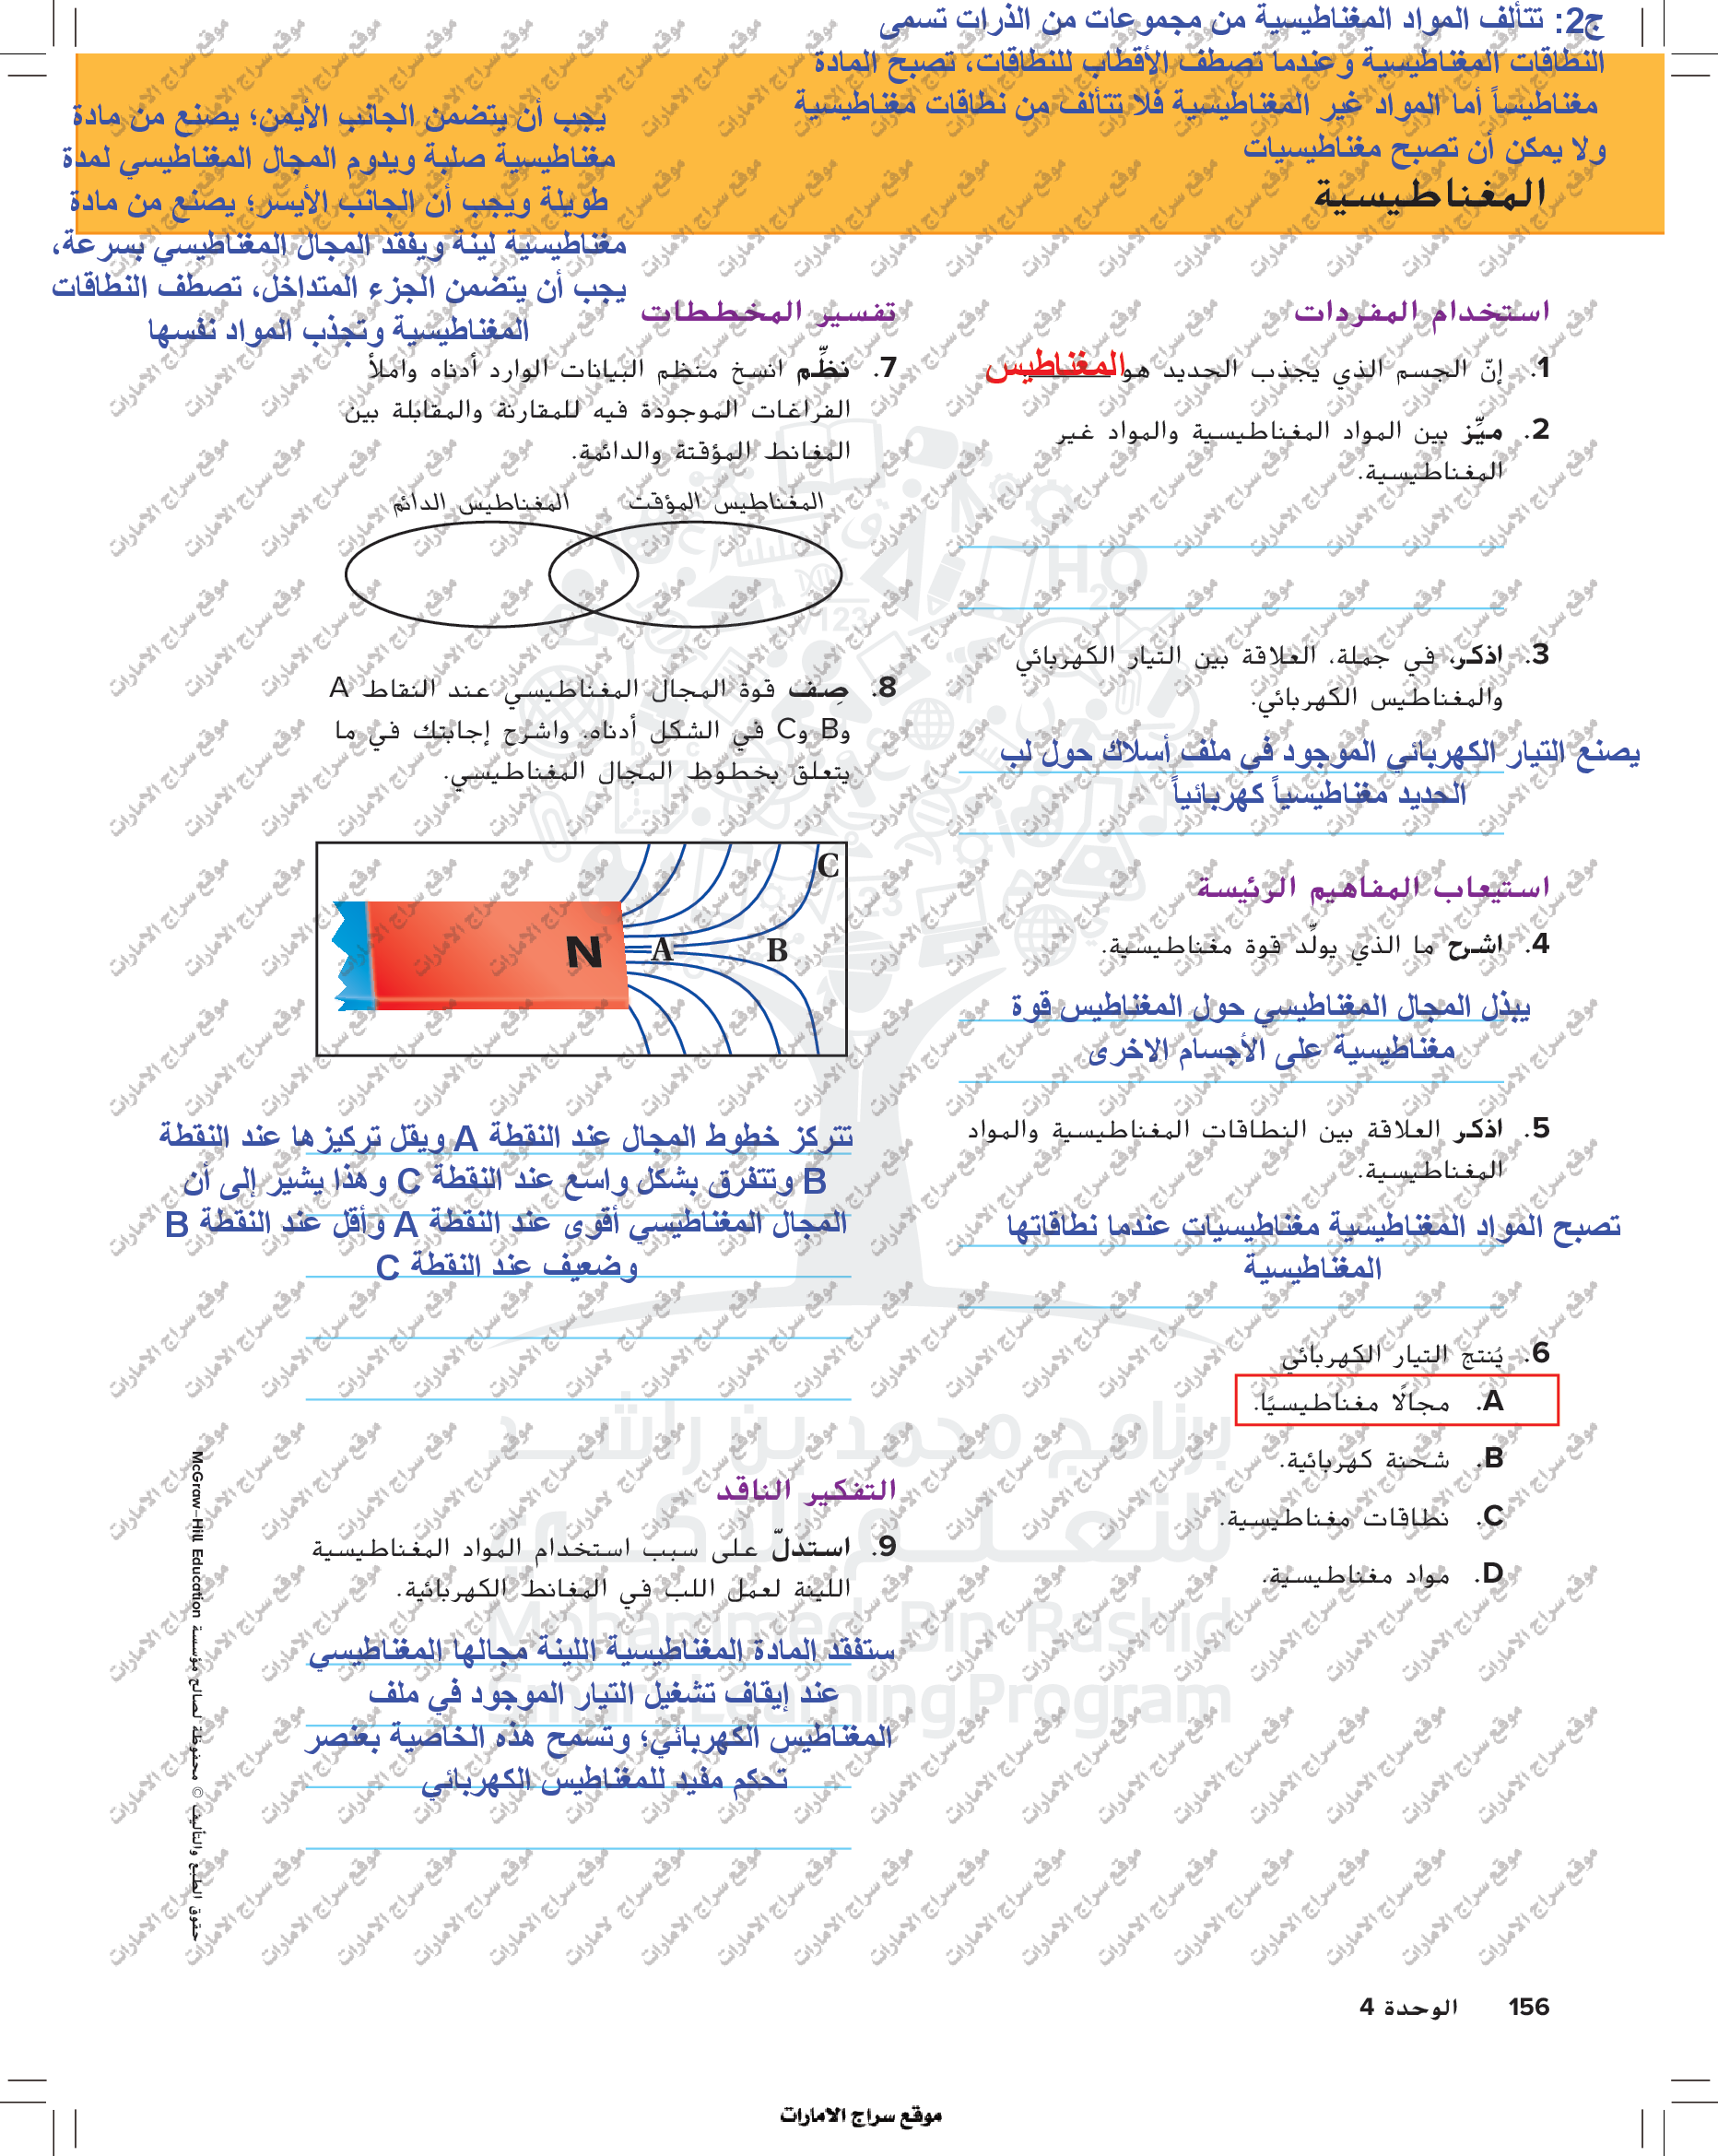 ج2: تتألف المواد المغناطيسية من مجموعات من الذرات تسمى
النطاقات المغناطيسية وعندما تصطف الأقطاب للنطاقات، تصبح المادة
مغناطيساً أما المواد غير المغناطيسية فلا تتألف من نطاقات مغناطيسية
ولا يمكن أن تصبح مغناطيسيات
المغناطيسية
استخدام المفردات
1. إنّ الجسم الذي يجذب الحديد هو المغناطيس
2. ميِّز بين المواد المغناطيسية والمواد غير
المغناطيسية.
3. اذكر، في جملة، العلاقة بين التيار الكهربائي
والمغناطيس الكهربائي.
يصنع التيار الكهربائي الموجود في ملف أسلاك حول لب
الحديد مغناطيسياً كهربائياً
استيعاب المفاهيم الرئيسة
4. اشرح ما الذي يولّد قوة مغناطيسية.
يبذل المجال المغناطيسي حول المغناطيس قوة
مغناطيسية على الأجسام الاخرى
5. اذكر العلاقة بين النطاقات المغناطيسية والمواد
المغناطيسية.
تصبح المواد المغناطيسية مغناطيسيات عندما نطاقاتها
المغناطيسية
6. يُنتج التيار الكهربائي
A. مجالًا مغناطيسيًا.
B. شحنة كهربائية.
C. نطاقات مغناطيسية.
D. مواد مغناطيسية.
يجب أن يتضمن الجانب الأيمن؛ يصنع من مادة
مغناطيسية صلبة ويدوم المجال المغناطيسي لمدة
طويلة ويجب أن الجانب الأيسر؛ يصنع من مادة
مغناطيسية لينة ويفقد المجال المغناطيسي بسرعة،
يجب أن يتضمن الجزء المتداخل، تصطف النطاقات
المغناطيسية وتجذب المواد نفسها
تفسير المخططات
7. نظِّم انسخ منظم البيانات الوارد أدناه واملأ
الفراغات الموجودة فيه للمقارنة والمقابلة بين
المغانط المؤقتة والدائمة.
المغناطيس المؤقت
المغناطيس الدائم
8. صِف قوة المجال المغناطيسي عند النقاط A
وB وC في الشكل أدناه. واشرح إجابتك في ما
يتعلق بخطوط المجال المغناطيسي.
C
N A B
تتركز خطوط المجال عند النقطة A ويقل تركيزها عند النقطة
B وتتفرق بشكل واسع عند النقطة C وهذا يشير إلى أن
المجال المغناطيسي أقوى عند النقطة A وأقل عند النقطة B
وضعيف عند النقطة C
التفكير الناقد
9. استدلّ على سبب استخدام المواد المغناطيسية
اللينة لعمل اللب في المغانط الكهربائية.
ستفقد المادة المغناطيسية اللينة مجالها المغناطيسي
عند إيقاف تشغيل التيار الموجود في ملف
المغناطيس الكهربائي؛ وتسمح هذه الخاصية بعنصر
تحكم مفيد للمغناطيس الكهربائي
برنامج محمد بن راشد
للتعلم الذكي
Mohammed Bin Rashid
Smart Learning Program
حقوق الطبع والتأليف © محفوظة لصالح مؤسسة McGraw-Hill Education
156 الوحدة 4
موقع سراج الامارات